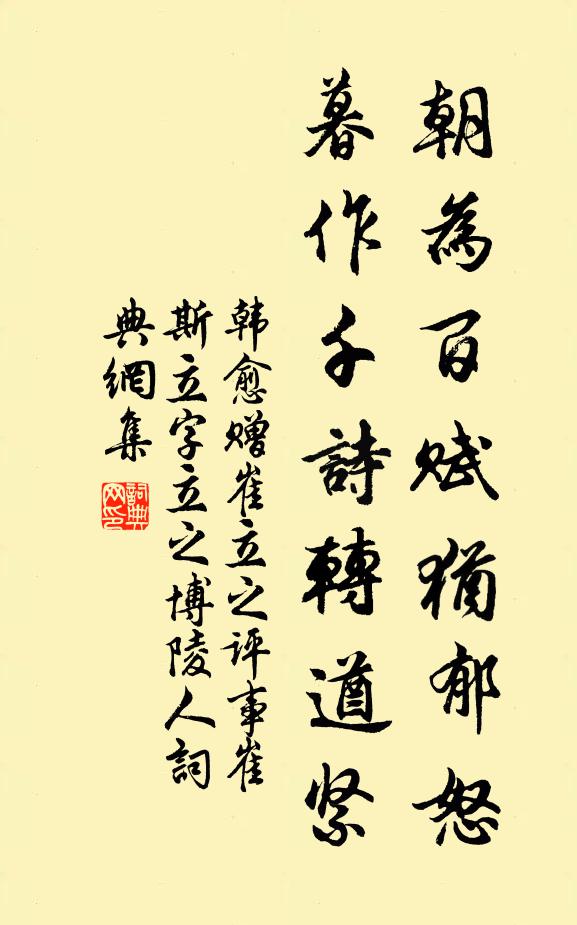 朝為百賦猶郁怒
暮作千詩轉遒紧
韩愈赠崔立之评事崔
斯立字立之博陵人詞
典網集
詞典
网印